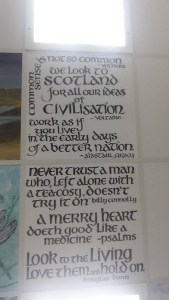 common sense is not so common
-voltaire
we look to
SCOTLAND
for all our ideas
of
CIVILISATION
-voltaire
work as if
you live
in the early days
of a better nation
-alastair gray
never trust a man
who, left alone with
a teacosy, doesn't
try it on billy connolly
a merry heart
doeth good like a
medicine -psalms
Look to the Living
Love them and hold on
Douglas Dunn